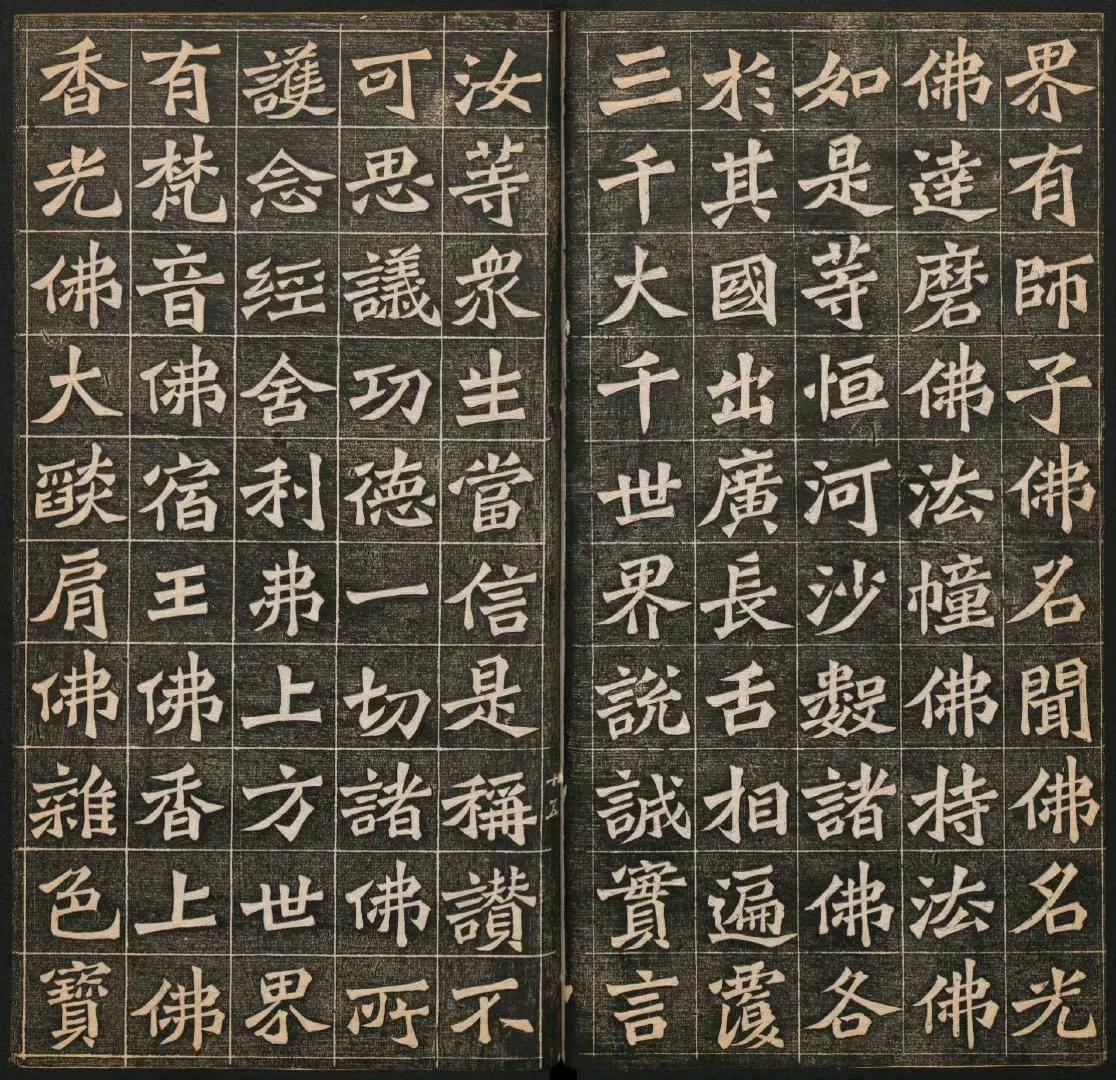 界有師子佛名聞佛名光
佛達磨佛法幢佛持法佛
如是等恒河沙數諸佛各
於其國出廣長舌相遍覆
三千大千世界說誠實言
汝等眾生當信是稱讚不
可思議功德一切諸佛所
護念經舍利弗上方世界
有梵音佛宿王佛香上佛
香光佛大燄肩佛雜色寶
十五